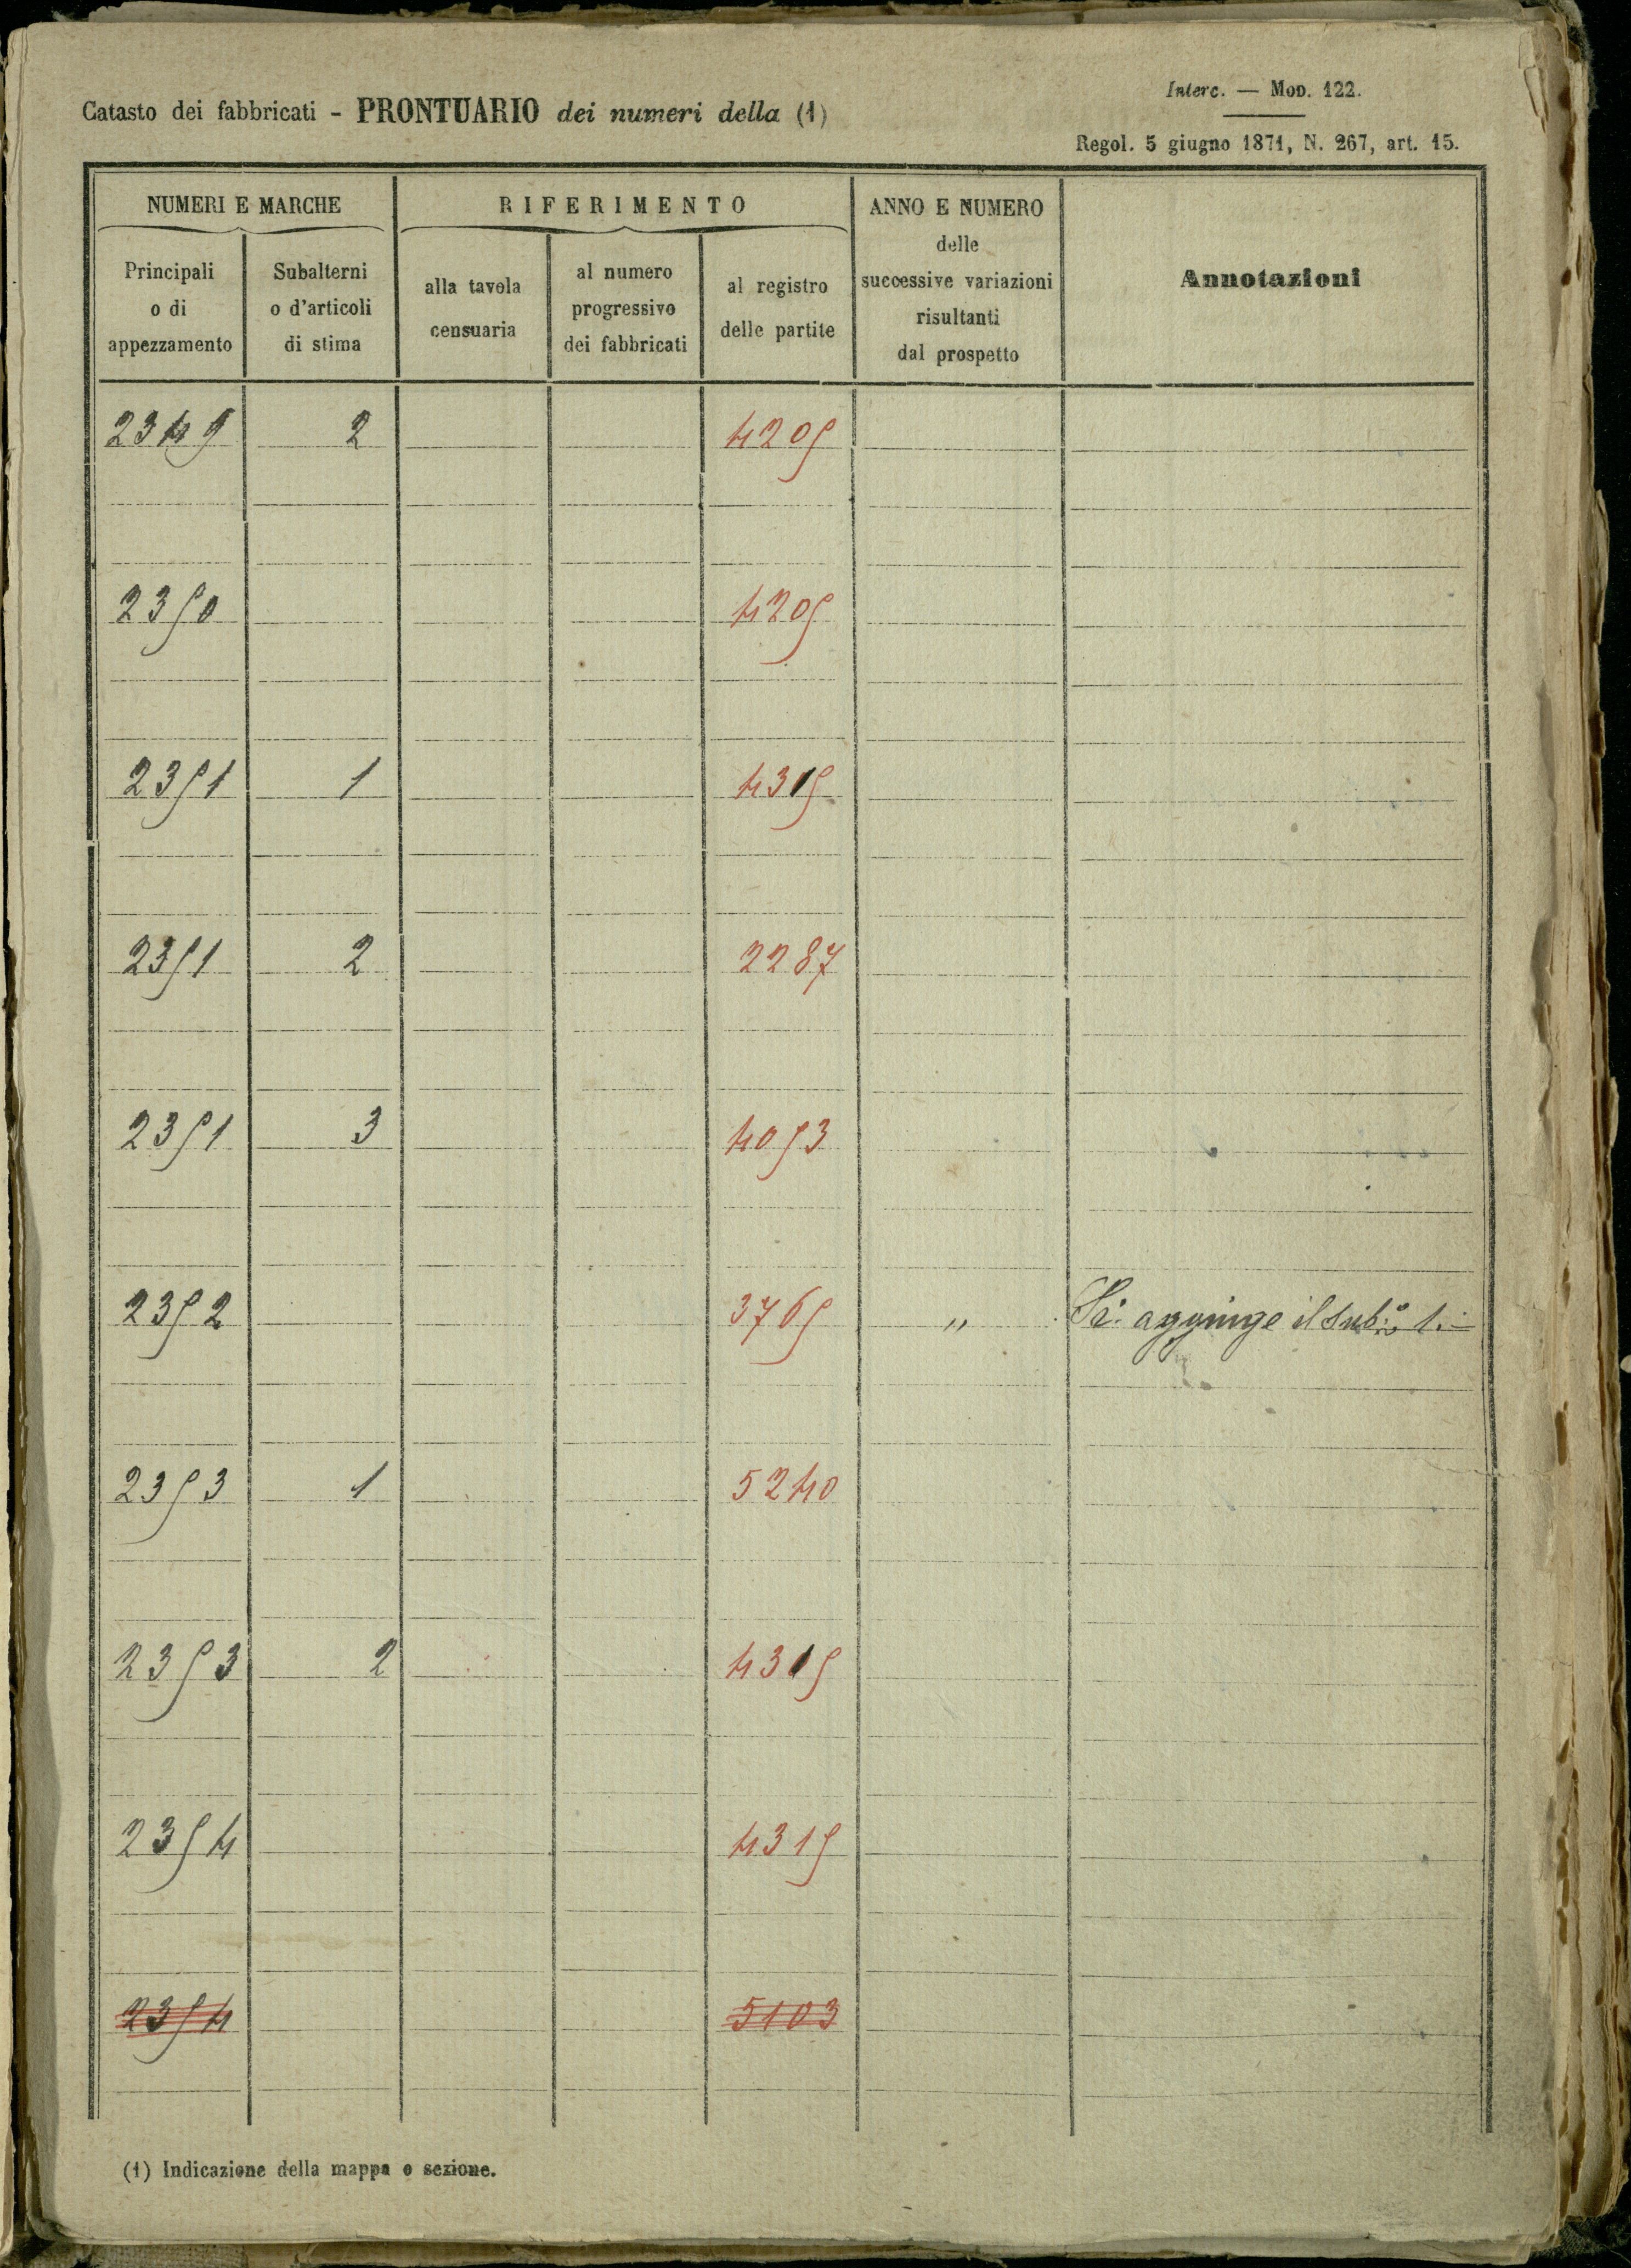 Catasto dei fabbricati - PRONTUARIO dei numeri della (1)
Interc. — Mod. 122.
Regol. 5 giugno 1871, N. 267, art. 15.
NUMERI E MARCHE
RIFERIMENTO
ANNO E NUMERO
delle
successive variazioni
risultanti
dal prospetto
Annotazioni
Principali
o di
appezzamento
Subalterni
o d'articoli
di stima
alla tavola
censuaria
al numero
progressivo
dei fabbricati
al registro
delle partite
2349 2 4205
2350 4205
2351 1 4315
2351 2 2287
2351 3 4053
2352 3765 " Si aggiunge il sub.º 1.
2353 1 5240
2353 2 4315
2354 4315
2354 5103
(1) Indicazione della mappa o sezione.